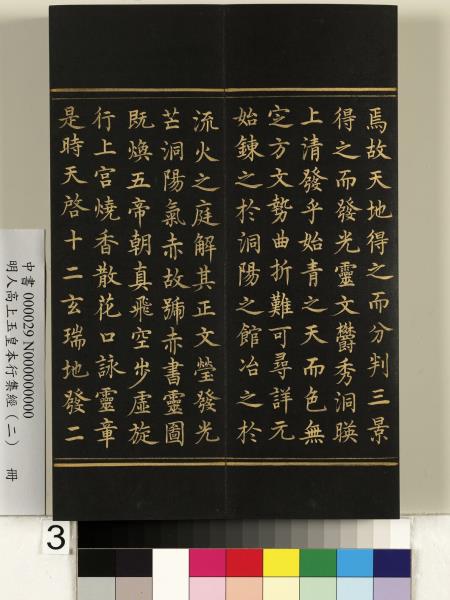 焉故天地得之而分判三景
得之而發光靈文欝秀洞暎
上清發乎始青之天而色無
定方文勢曲折難可尋詳元
始鍊之於洞陽之館冶之於
流火之庭解其正文瑩發光
芒洞陽氣赤故號赤書靈圖
既煥五帝朝真飛空步虛旋
行上宮燒香散花口詠靈章
是時天啓十二玄瑞地發二
中書 000029 N000000000
明人高上玉皇本行集經(二) 冊
3